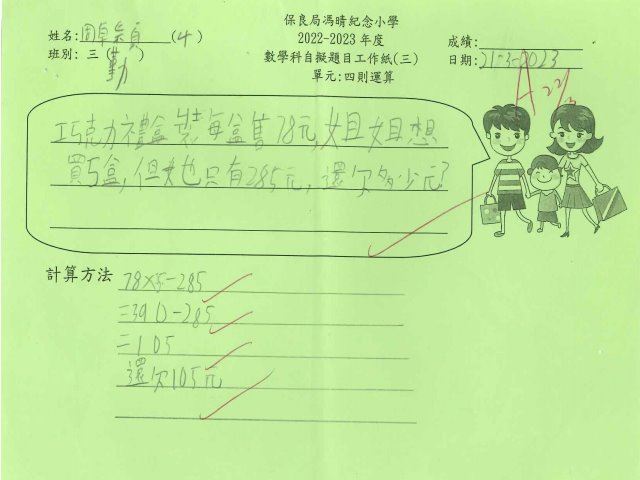 保良局馮晴紀念小學
姓名: 周卓穎 (4)
2022-2023 年度
成績:
班別: 三 (勤)
數學科自擬題目工作紙(三)
日期: 21-3-2023
單元:四則運算
A
巧克力禮盒裝每盒售78元,姐姐想
買5盒,但她只有285元,還欠多少元?
計算方法
78×5-285
=390-285
=105
還欠105元